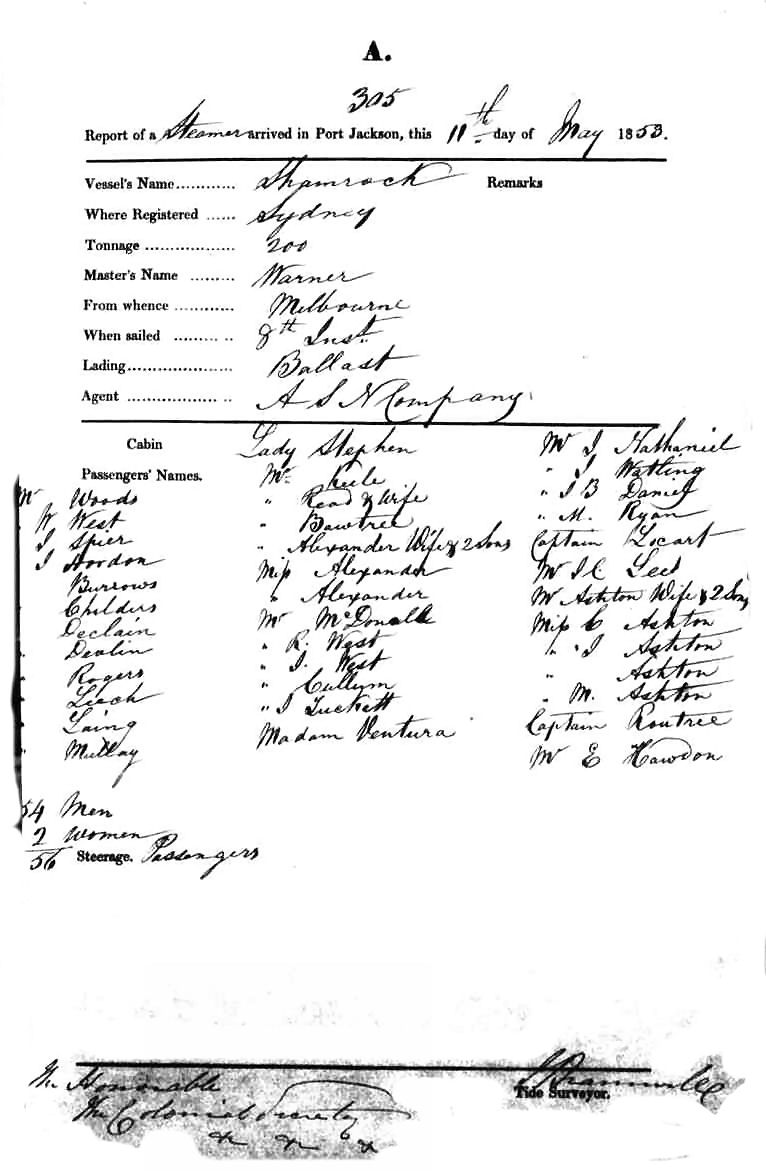 A.
305
Report of a Steamer arrived in Port Jackson, this 11th day of May 1853.
Vessel's Name............ Shamrock Remarks
Where Registered ...... Sydney
Tonnage .................. 200
Master's Name ......... Warner
From whence ............ Melbourne
When sailed ........ .. 8th Inst.
Lading..................... Ballast
Agent .................. .. A S N Company
Cabin
Passengers' Names.
Mr Woods
W West
J Spier
J Hordon
Burrows
Childers
Declain
Devlin
Rogers
Leech
Laing
Mullay
Lady Stephen
Mr Keele
" Read & Wife
" Bawtree
" Alexander Wife & 2 Sons
Miss Alexander
" Alexander
Mr McDonald
" R. West
" J. West
" Cullum
" J Luckett
Madam Ventura
Mr J Nathaniel
" J Watling
" J B Daniel
" M. Ryan
Captain Locart
Mr J C Lee
Mr Ashton Wife & 2 Sons
Miss C Ashton
" J Ashton
" Ashton
" M. Ashton
Captain Rountree
Mr E Hawdon
54 Men
2 Women
56 Steerage. Passengers
The Honorable
The Colonial Secretary
Tide Surveyor.